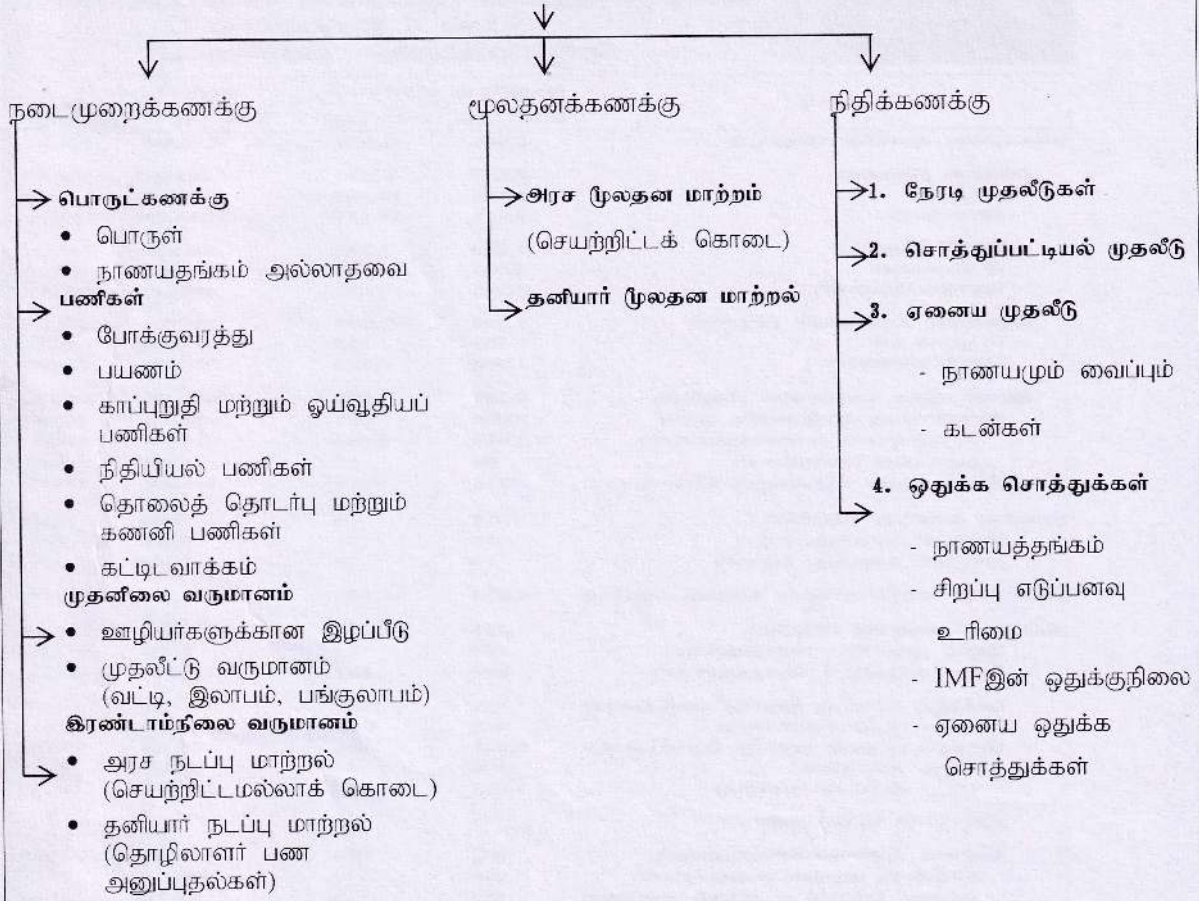 நடைமுறைக்கணக்கு
பொருட்கணக்கு
• பொருள்
• நாணயதங்கம் அல்லாதவை
பணிகள்
• போக்குவரத்து
• பயணம்
• காப்புறுதி மற்றும் ஓய்வூதியப்
பணிகள்
• நிதியியல் பணிகள்
• தொலைத் தொடர்பு மற்றும்
கணனி பணிகள்
• கட்டிடவாக்கம்
முதனிலை வருமானம்
• ஊழியர்களுக்கான இழப்பீடு
• முதலீட்டு வருமானம்
(வட்டி, இலாபம், பங்குலாபம்)
இரண்டாம்நிலை வருமானம்
• அரச நடப்பு மாற்றல்
(செயற்றிட்டமல்லாக் கொடை)
• தனியார் நடப்பு மாற்றல்
(தொழிலாளர் பண
அனுப்புதல்கள்)
மூலதனக்கணக்கு
அரச மூலதன மாற்றம்
(செயற்றிட்டக் கொடை)
தனியார் மூலதன மாற்றல்
நிதிக்கணக்கு
1. நேரடி முதலீடுகள்
2. சொத்துப்பட்டியல் முதலீடு
3. ஏனைய முதலீடு
- நாணயமும் வைப்பும்
- கடன்கள்
4. ஒதுக்க சொத்துக்கள்
- நாணயத்தங்கம்
- சிறப்பு எடுப்பனவு
உரிமை
- IMFஇன் ஒதுக்குநிலை
- ஏனைய ஒதுக்க
சொத்துக்கள்